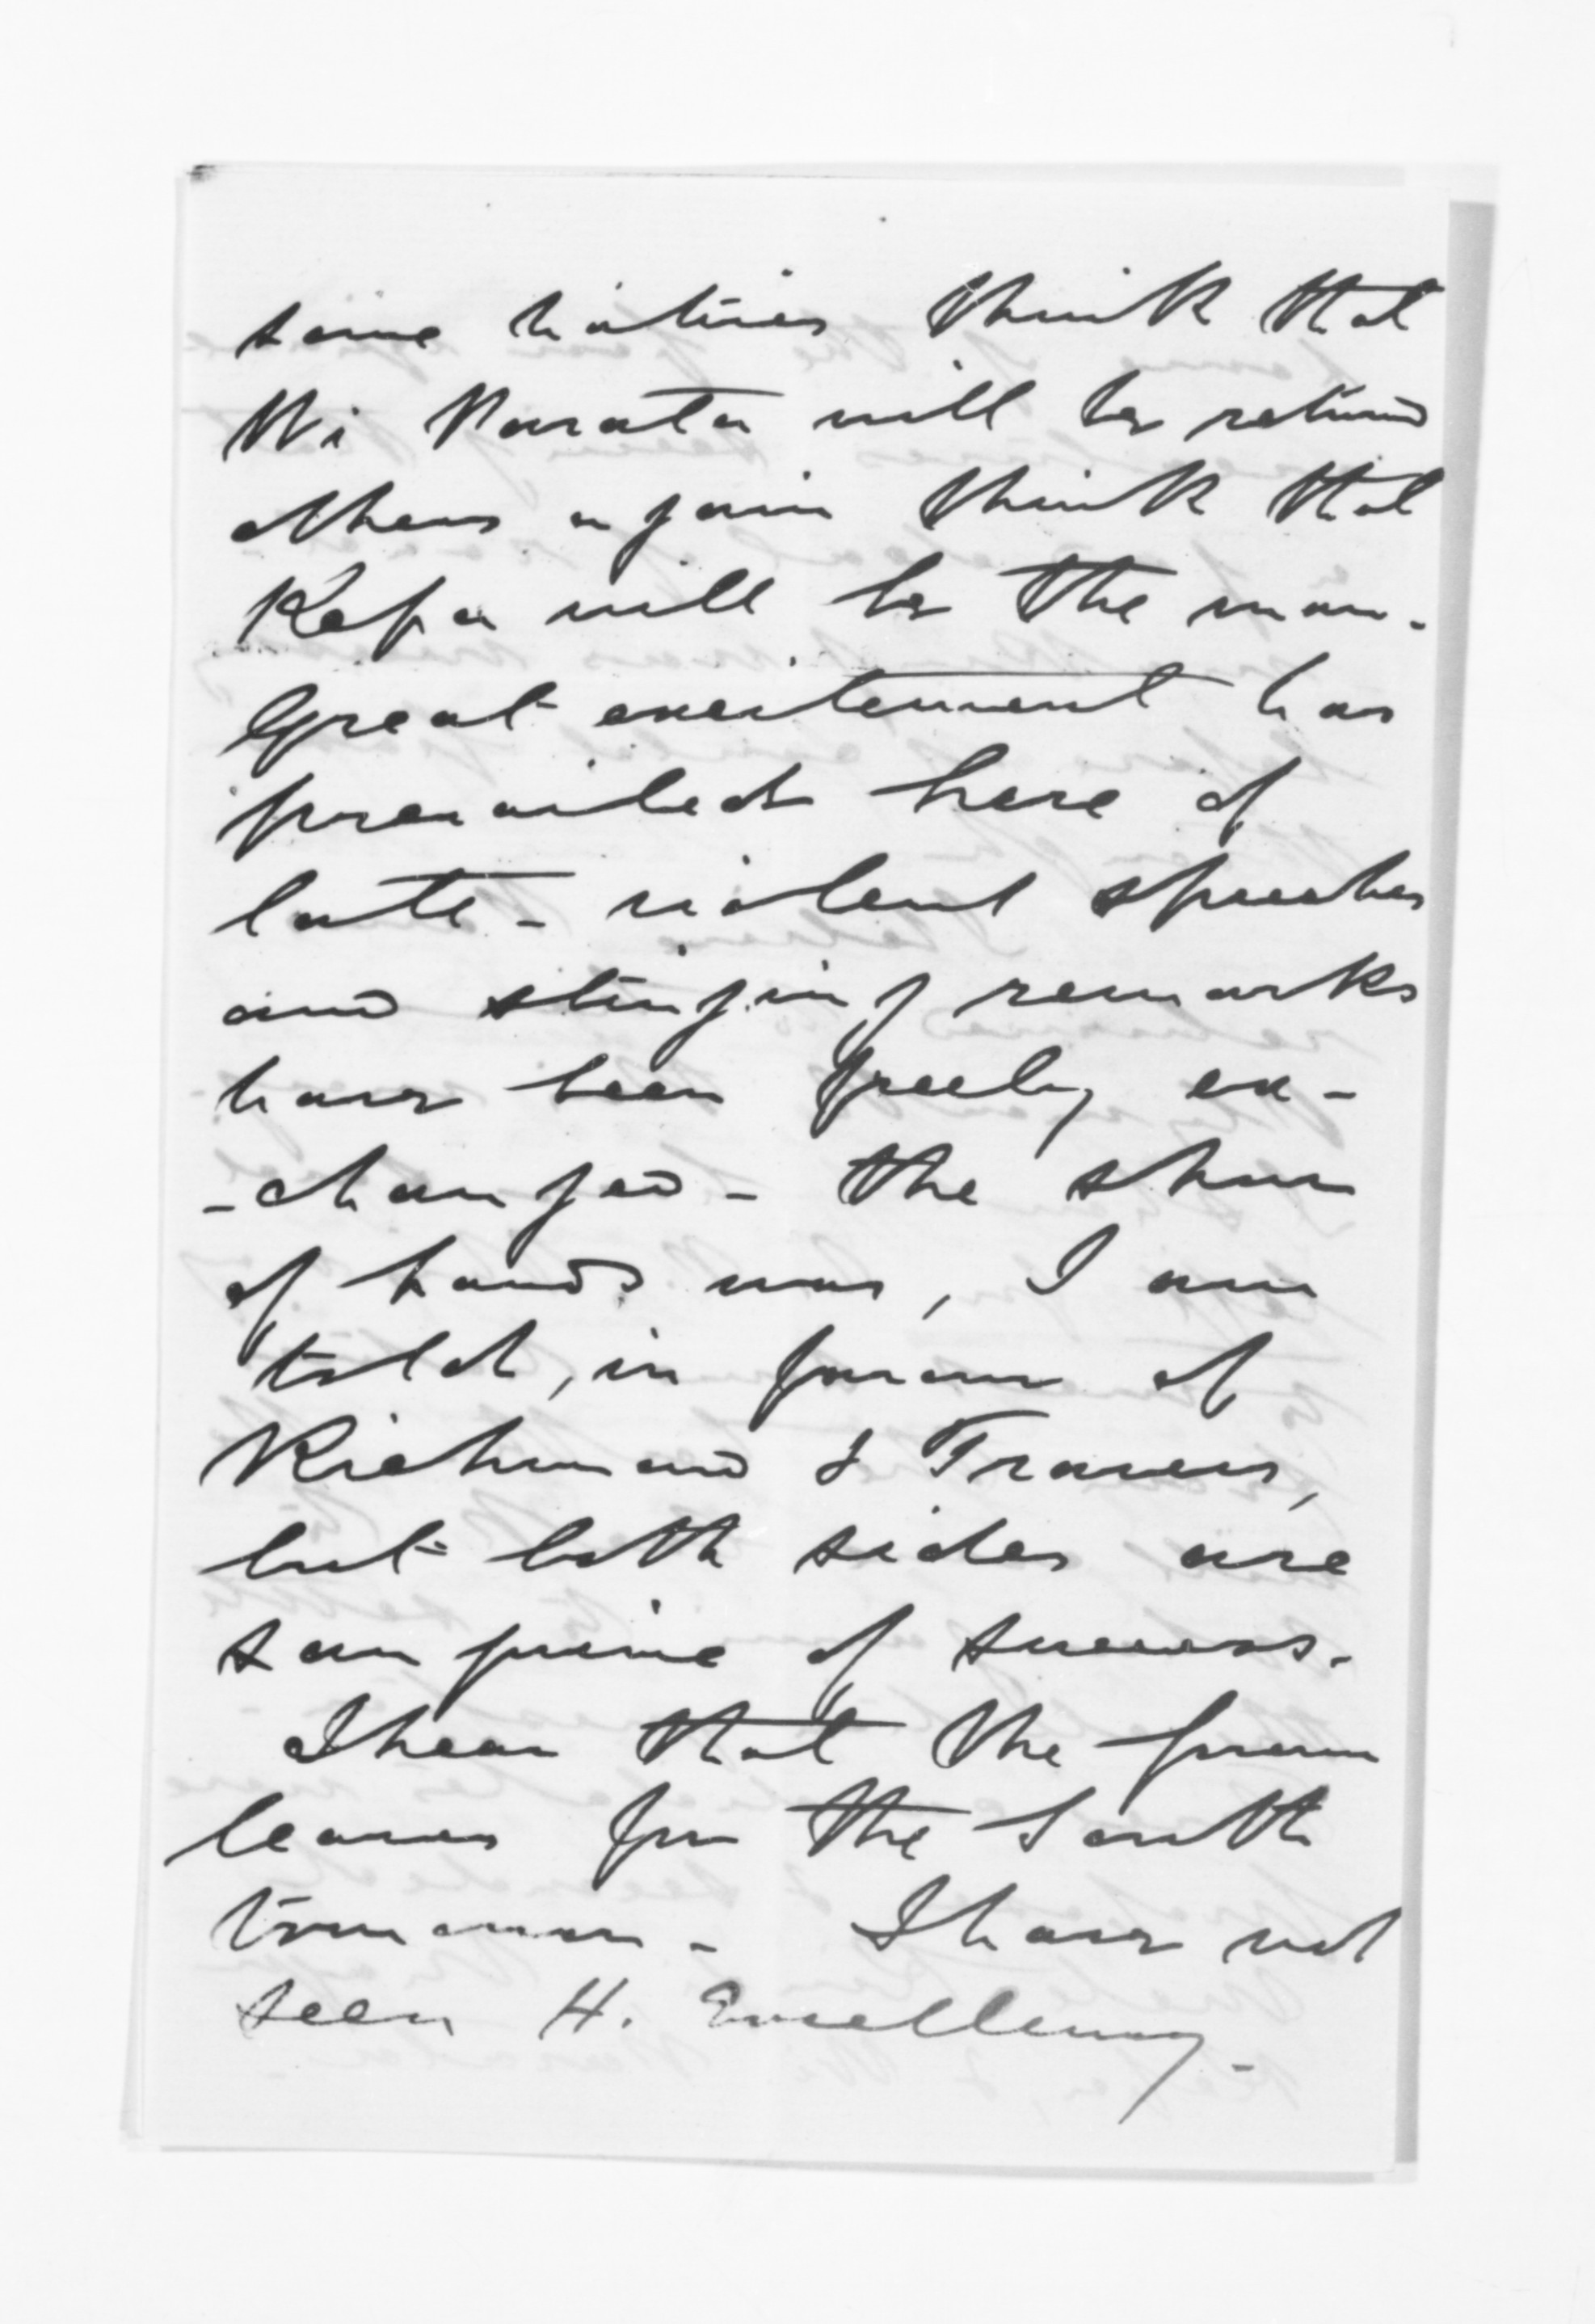 some natives think that
Wi Parata will be returned
others again think that
Kepa will be the man.
Great excitement has
prevailed here of
late - violent speeches
and stinging remarks
have been freely ex-
-changed - the show
of hands was, I am
told, in favour of
Richmond & Travers,
but both sides are
sanguine of success.
I hear that the
leaves for the South
tomorrow - I have not
seen H. Excellency -